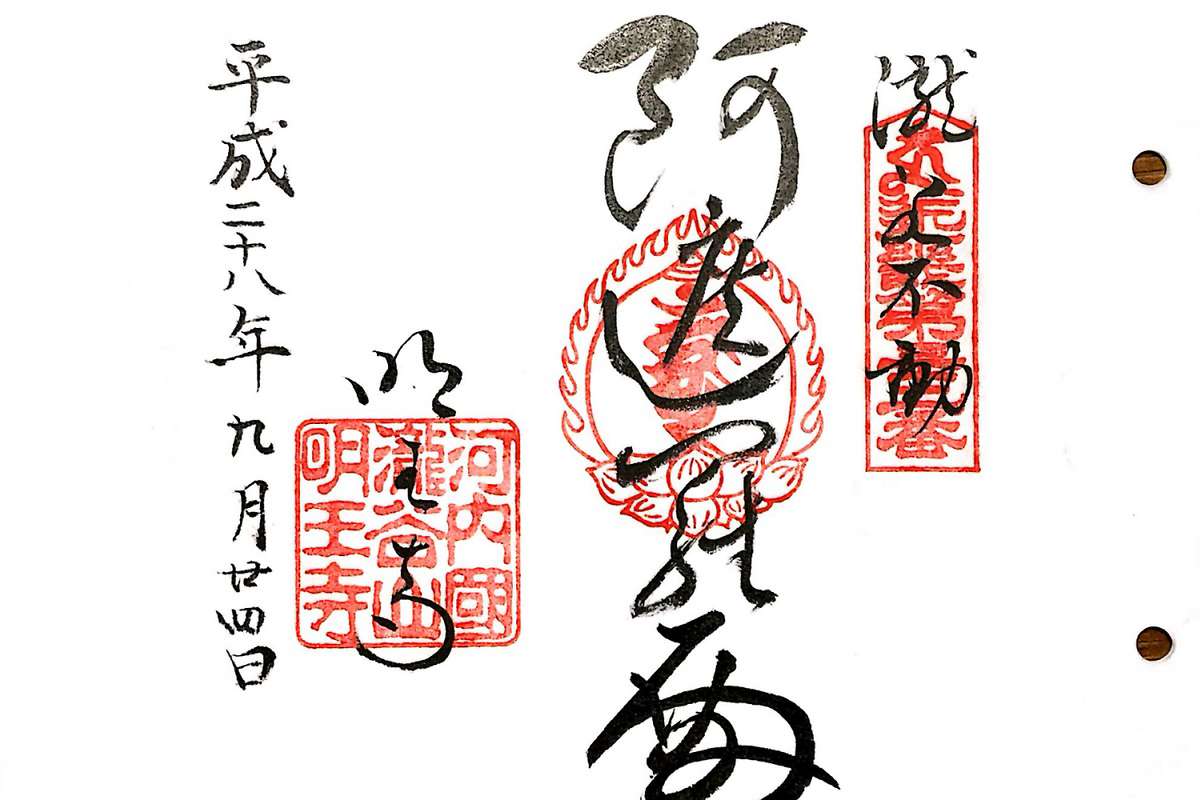 瀧谷不動
阿遮羅
河内國
瀧谷山
明王寺
明王寺
平成二十八年九月廿四日